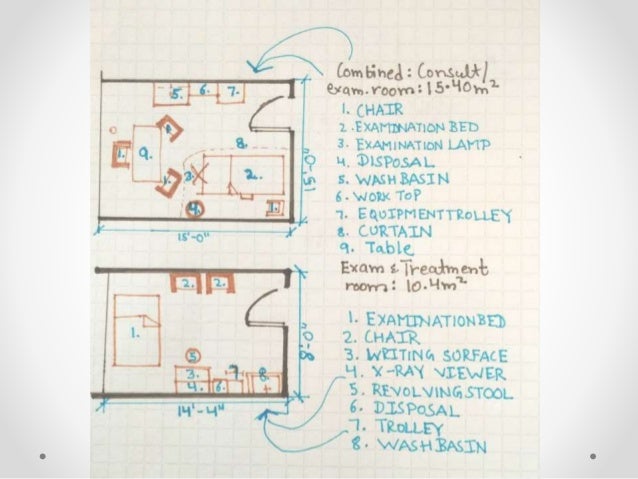 Combined: Consult/
exam.room: 15.40m²
1. CHAIR
2. EXAMINATION BED
3. EXAMINATION LAMP
4. DISPOSAL
5. WASH BASIN
6. WORK TOP
7. EQUIPMENT TROLLEY
8. CURTAIN
9. Table
5. 6. 7.
1.
1. 9.
8.
1. 3. 2.
4. 1.
15'-0"
15'-0"
Exam & Treatment
room: 10.4m²
1. EXAMINATION BED
2. CHAIR
3. WRITING SURFACE
4. X-RAY VIEWER
5. REVOLVING STOOL
6. DISPOSAL
7. TROLLEY
8. WASH BASIN
2. 2.
1.
5
3. 7 8.
4. 6.
8'-0"
14'-4"